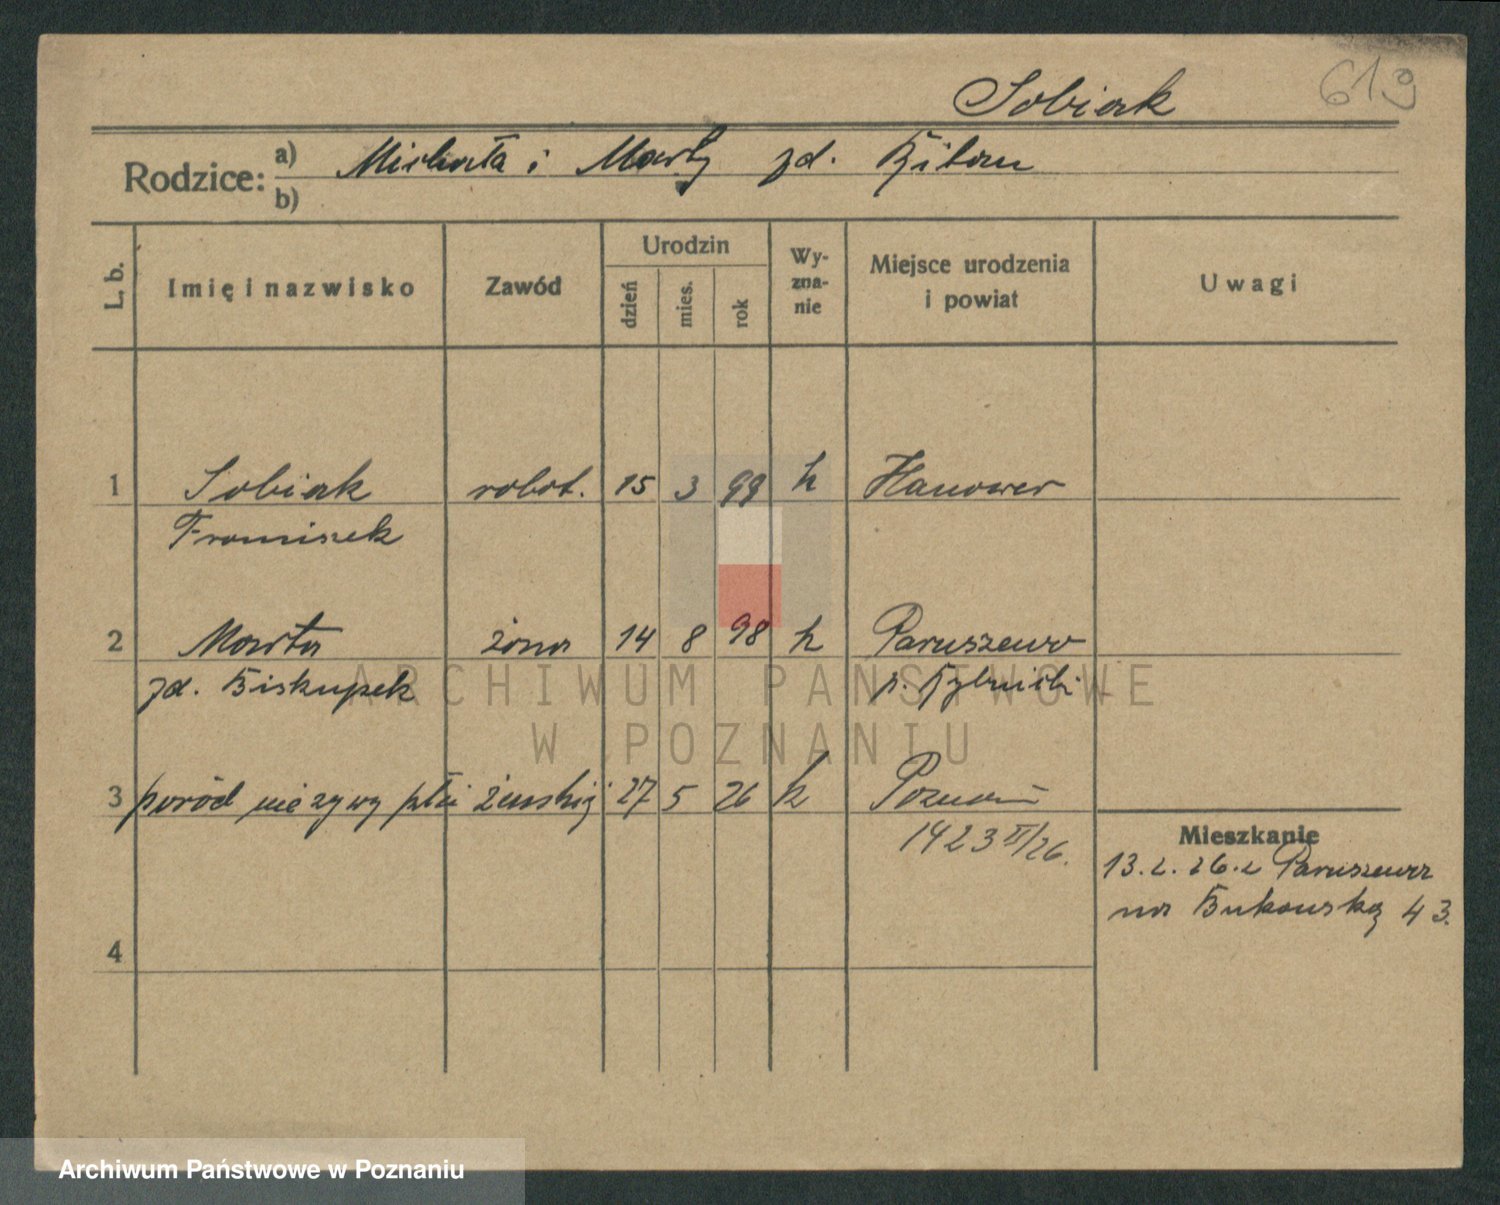 Sobiak 619
Rodzice: a) Michała i Marty zd.
b)
L. b. Imię i nazwisko Zawód Urodzin dzień mies. rok Wy-zna-nie Miejsce urodzenia i powiat Uwagi
1 Sobiak robot. 15 3 99 k Hanower
Franciszek
2 Marta żona 14 8 98 k Paruszewo
zd. Biskupek p. Rybnicki
3 poród nieżywy płci żeńskiej 27 5 26 k Poznań
1423 II/26.
Mieszkanie
13.2.26. z Paruszewa
na Bukowską 43.
4
ARCHIWUM PAŃSTWOWE
W POZNANIU
Archiwum Państwowe w Poznaniu